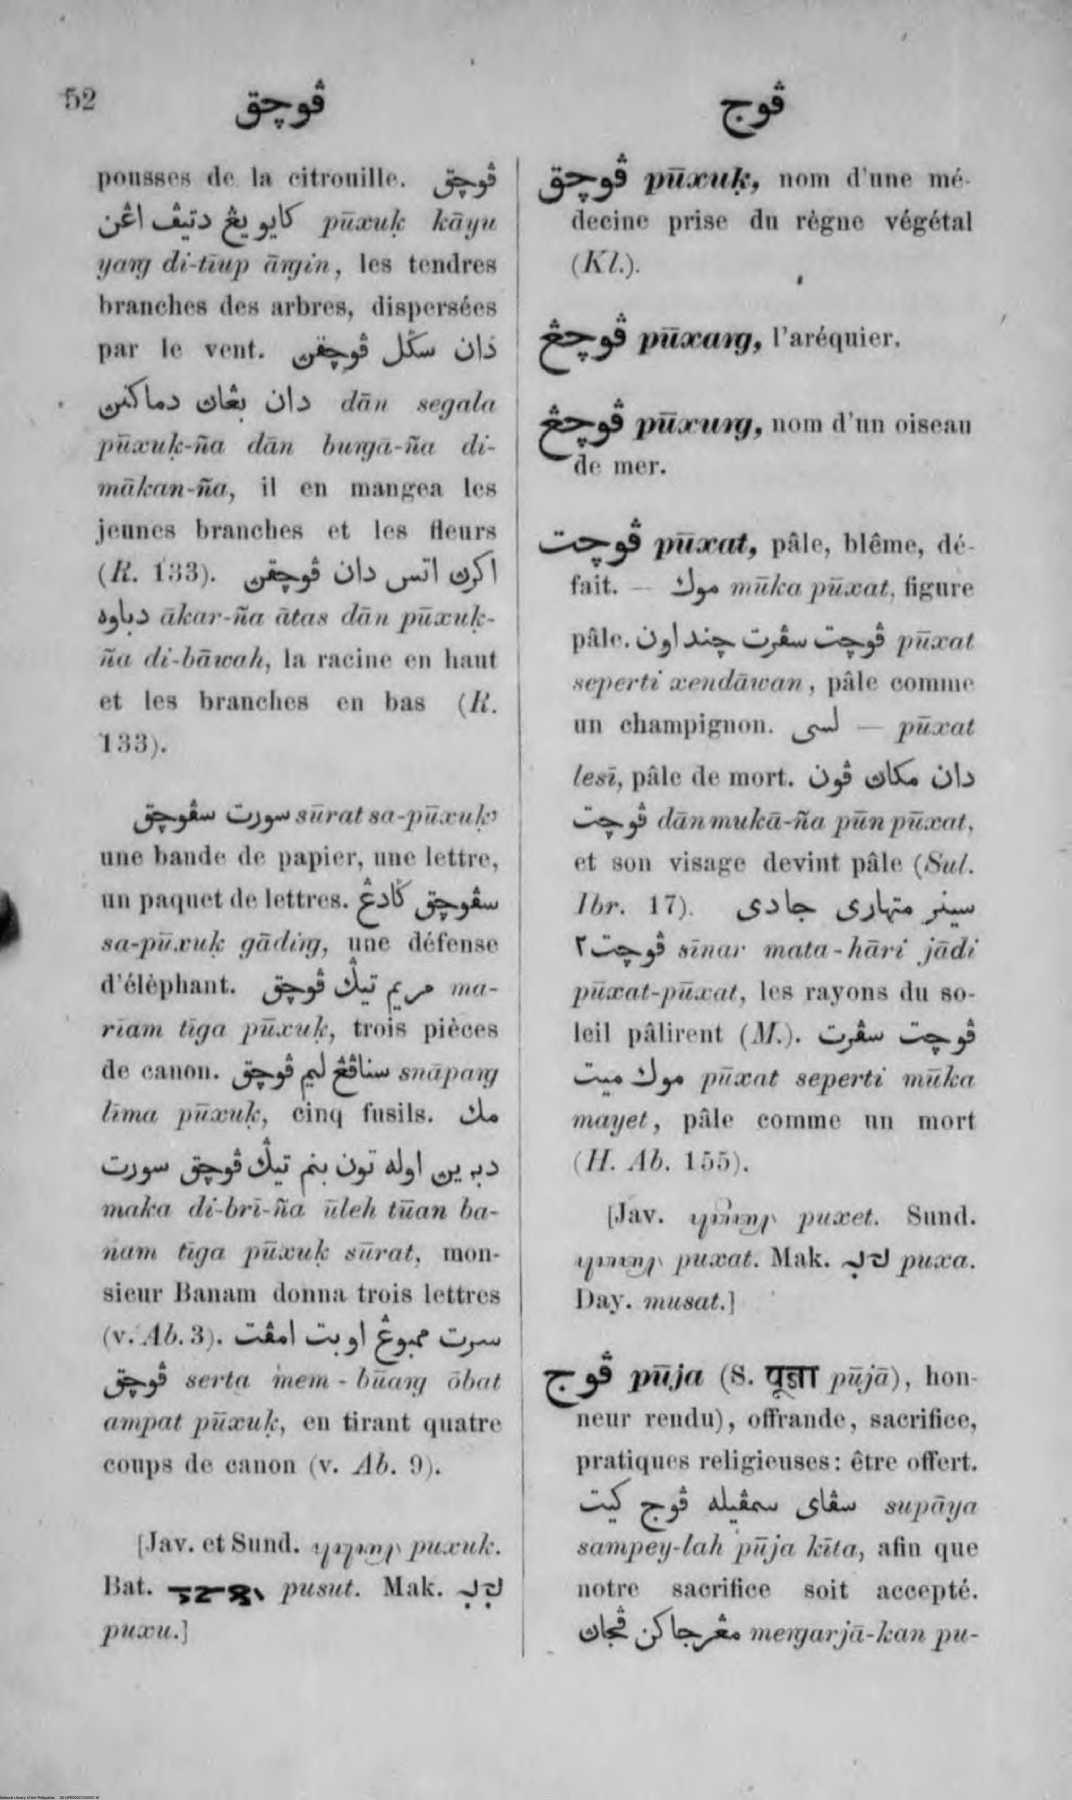 52 ڤوچق ڤوج
pousses de la citrouille. ڤوچق
كايو يڠ دتيڤ اڠن pūxuḳ kāyu
yaṅg di-tīup āṅgin, les tendres
branches des arbres, dispersées
par le vent. دان سڬل ڤوچقن
دان بڠان دماكنن dān segala
pūxuḳ-ña dān buṅgā-ña di-
mākan-ña, il en mangea les
jeunes branches et les fleurs
(R. 133). اكرن اتس دان ڤوچقن
دباوه ākar-ña ātas dān pūxuḳ-
ña di-bāwah, la racine en haut
et les branches en bas (R.
133).
سورت سڤوچق sūrat sa-pūxuḳ,
une bande de papier, une lettre,
un paquet de lettres. سڤوچق ڬادڠ
sa-pūxuḳ gādiṅg, une défense
d'éléphant. مريم تيݢ ڤوچق ma-
rīam tīga pūxuḳ, trois pièces
de canon. سناڤڠ ليم ڤوچق snāpaṅg
līma pūxuḳ, cinq fusils. مك
دبرين اوله تون بنم تيݢ ڤوچق سورت
maka di-brī-ña ūleh tūan ba-
nam tīga pūxuḳ sūrat, mon-
sieur Banam donna trois lettres
(v. Ab. 3). سرت ممبوڠ اوبت امڤت
ڤوچق serta mem-būaṅg ōbat
ampat pūxuḳ, en tirant quatre
coups de canon (v. Ab. 9).
[Jav. et Sund. puxuk.
Bat. pusut. Mak.
puxu.]
ڤوچق pūxuḳ, nom d'une mé-
decine prise du règne végétal
(Kl.).
ڤوچڠ pūxaṅg, l'aréquier.
ڤوچڠ pūxuṅg, nom d'un oiseau
de mer.
ڤوچت pūxat, pâle, blême, dé-
fait. — موك mūka pūxat, figure
pâle. ڤوچت سڤرت چنداون pūxat
seperti xendāwan, pâle comme
un champignon. لسى — pūxat
lesī, pâle de mort. دان مكان ڤون
ڤوچت dān mukā-ña pūn pūxat,
et son visage devint pâle (Sul.
Ibr. 17). سينر متهارى جادى
ڤوچت٢ sīnar mata-hāri jādi
pūxat-pūxat, les rayons du so-
leil pâlirent (M.). ڤوچت سڤرت
موك ميت pūxat seperti mūka
mayet, pâle comme un mort
(H. Ab. 155).
[Jav. puxet. Sund.
puxat. Mak. puxa.
Day. musat.]
ڤوج pūja (S. पूजा pūjā), hon-
neur rendu), offrande, sacrifice,
pratiques religieuses: être offert.
سڤاى سمڤيله ڤوج كيت supāya
sampey-lah pūja kīta, afin que
notre sacrifice soit accepté.
مڠرجاكن ڤجان meṅgarjā-kan pu-